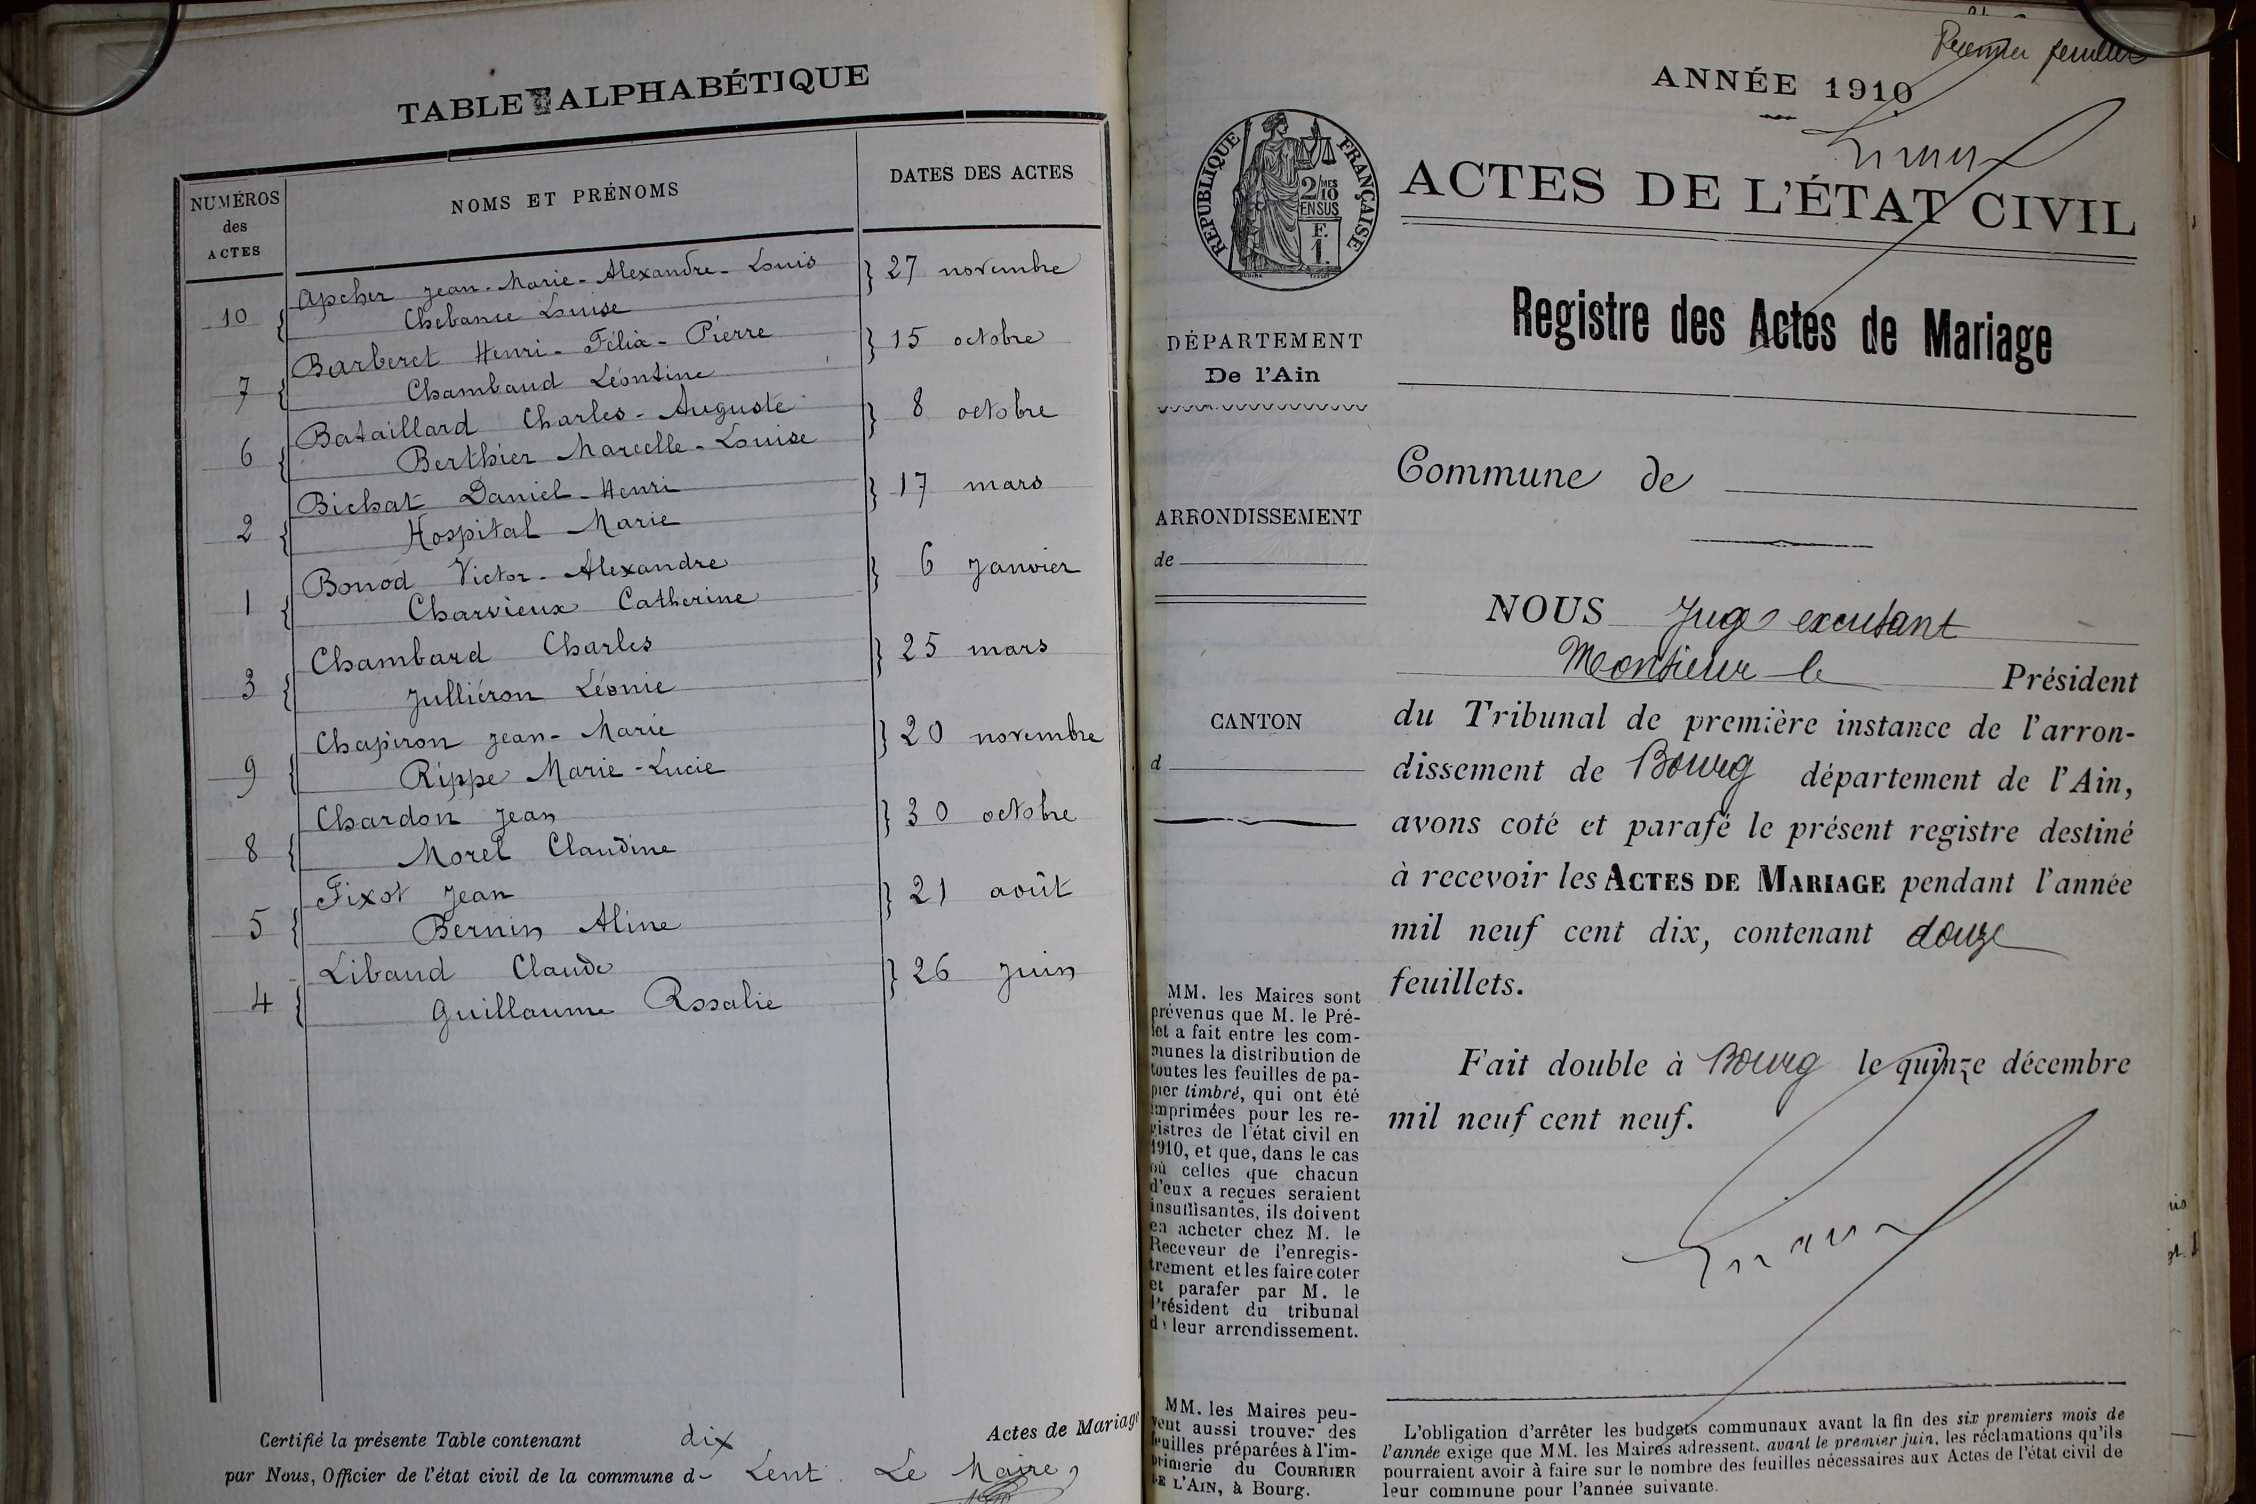 TABLE ALPHABÉTIQUE
NUMÉROS
des
ACTES
NOMS ET PRÉNOMS
DATES DES ACTES
10 { Apcher Jean-Marie-Alexandre-Louis } 27 novembre
Chebance Louise
7 { Barberet Henri-Félix-Pierre } 15 octobre
Chambaud Léontine
6 { Bataillard Charles-Auguste } 8 octobre
Berthier Marcelle-Louise
2 { Bichat Daniel-Henri } 17 mars
Hospital Marie
1 { Bonod Victor-Alexandre } 6 Janvier
Charvieux Catherine
3 { Chambard Charles } 25 mars
Julliéron Léonie
9 { Chapiron Jean-Marie } 20 novembre
Rippe Marie-Lucie
8 { Chardon Jean } 30 octobre
Morel Claudine
5 { Fixot Jean } 21 août
Bernin Aline
4 { Libaud Claude } 26 Juin
Guillaume Rosalie
Certifié la présente Table contenant dix Actes de Mariage
par Nous, Officier de l'état civil de la commune d- Lent. Le Maire,
Premier feuillet
ANNÉE 1910
RÉPUBLIQUE FRANÇAISE
2/10 MES
EN SUS
F.
1.
ACTES DE L'ÉTAT CIVIL
Registre des Actes de Mariage
DÉPARTEMENT
De l'Ain
Commune de
ARRONDISSEMENT
de
CANTON
d
NOUS Juge excusant
Monsieur le Président
du Tribunal de première instance de l'arron-
dissement de Bourg département de l'Ain,
avons coté et parafé le présent registre destiné
à recevoir les ACTES DE MARIAGE pendant l'année
mil neuf cent dix, contenant douze
feuillets.
Fait double à Bourg le quinze décembre
mil neuf cent neuf.
MM. les Maires sont
prévenus que M. le Pré-
fet a fait entre les com-
munes la distribution de
toutes les feuilles de pa-
pier timbré, qui ont été
imprimées pour les re-
gistres de l'état civil en
1910, et que, dans le cas
où celles que chacun
d'eux a reçues seraient
insuffisantes, ils doivent
en acheter chez M. le
Receveur de l'enregis-
trement et les faire coter
et parafer par M. le
Président du tribunal
de leur arrondissement.
MM. les Maires peu-
vent aussi trouver des
feuilles préparées à l'im-
primerie du COURRIER
DE L'AIN, à Bourg.
L'obligation d'arrêter les budgets communaux avant la fin des six premiers mois de
l'année exige que MM. les Maires adressent, avant le premier juin, les réclamations qu'ils
pourraient avoir à faire sur le nombre des feuilles nécessaires aux Actes de l'état civil de
leur commune pour l'année suivante.